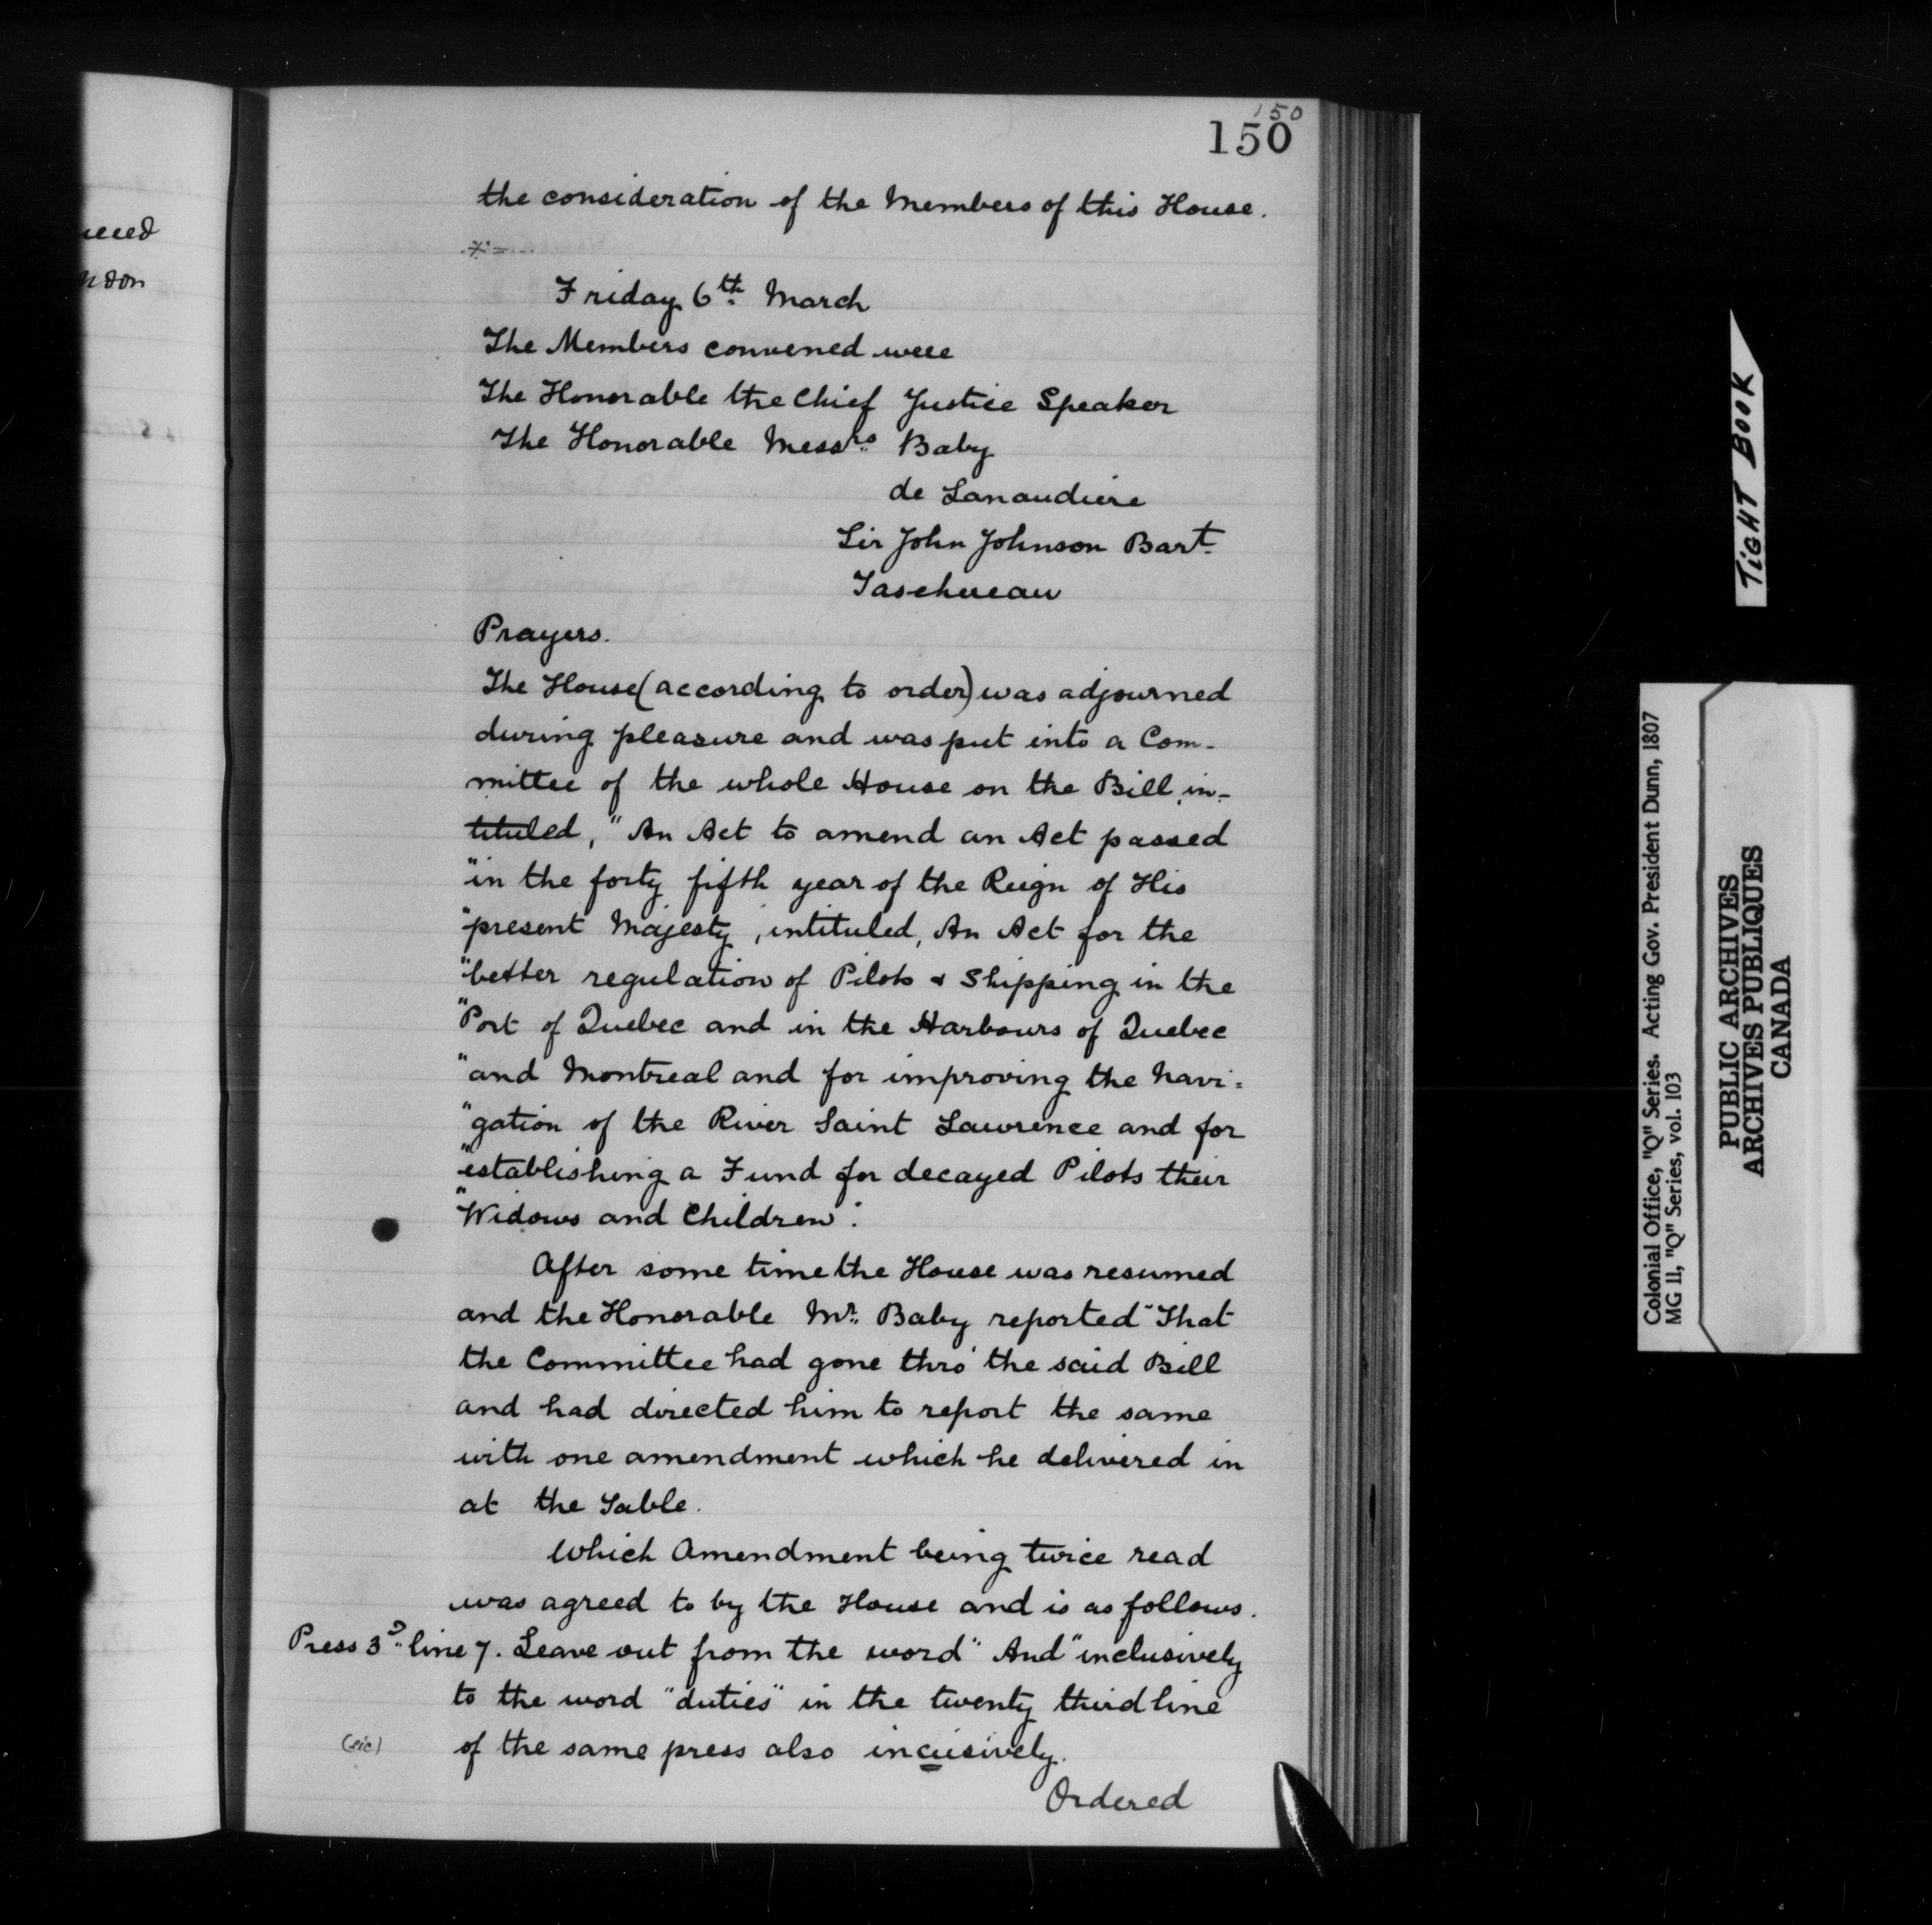 150
150
the consideration of the Members of this House.
Friday 6th March
The Members convened were
The Honorable the Chief Justice Speaker
The Honorable Messrs Baby
de Lanaudiere
Sir John Johnson Bart
Taschereau
Prayers.
The House (according to order) was adjourned
during pleasure and was put into a Com-
mittee of the whole House on the Bill in-
tituled, "An Act to amend an Act passed
"in the forty fifth year of the Reign of His
"present Majesty, intituled, An Act for the
"better regulation of Pilots & Shipping in the
"Port of Quebec and in the Harbours of Quebec
"and Montreal and for improving the Navi=
"gation of the River Saint Lawrence and for
"establishing a Fund for decayed Pilots their
"Widows and Children".
After some time the House was resumed
and the Honorable Mr. Baby reported "That
the Committee had gone thro' the said Bill
and had directed him to report the same
with one amendment which he delivered in
at the Table.
Which Amendment being twice read
was agreed to by the House and is as follows.
Press 3d line 7. Leave out from the word "And" inclusively
to the word "duties" in the twenty third line
of the same press also incusively.
(sic)
Ordered
ueed
ndon
TIGHT BOOK
Colonial Office, "Q" Series. Acting Gov. President Dunn, 1807
MG 11, "Q" Series, vol. 103
PUBLIC ARCHIVES
ARCHIVES PUBLIQUES
CANADA